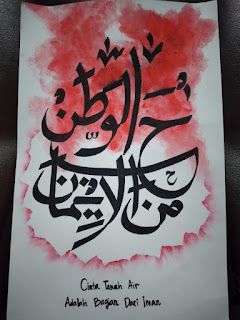 حب الوطن
من الإيمان
Cinta Tanah Air
Adalah Bagian Dari Iman